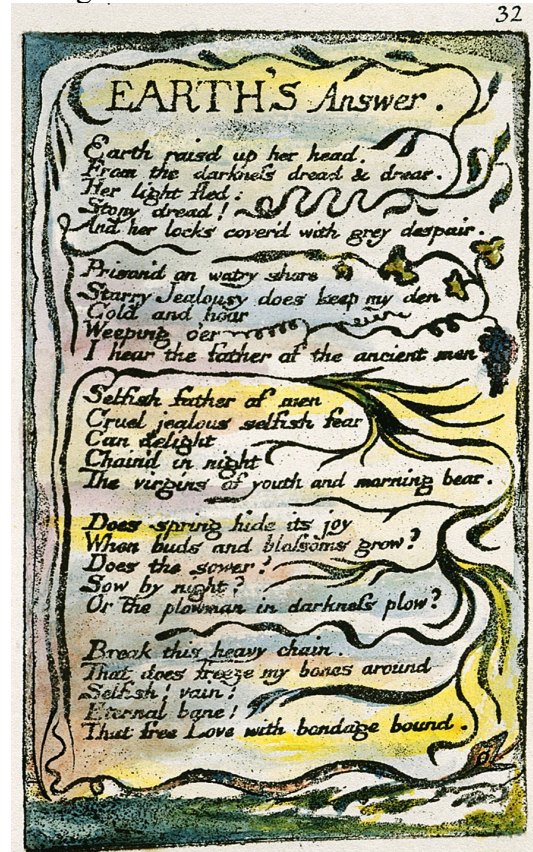 32
EARTH'S Answer.
Earth raisd up her head.
From the darkneſs dread & drear.
Her light fled:
Stony dread!
And her locks cover'd with grey despair.
Prison'd on watry shore
Starry Jealousy does keep my den
Cold and hoar
Weeping o'er
I hear the father of the ancient men
Selfish father of men
Cruel jealous selfish fear
Can delight
Chain'd in night
The virgins of youth and morning bear.
Does spring hide its joy
When buds and bloſsoms grow?
Does the sower?
Sow by night?
Or the plowman in darkneſs plow?
Break this heavy chain.
That does freeze my bones around
Selfish! vain!
Eternal bane!
That free Love with bondage bound.